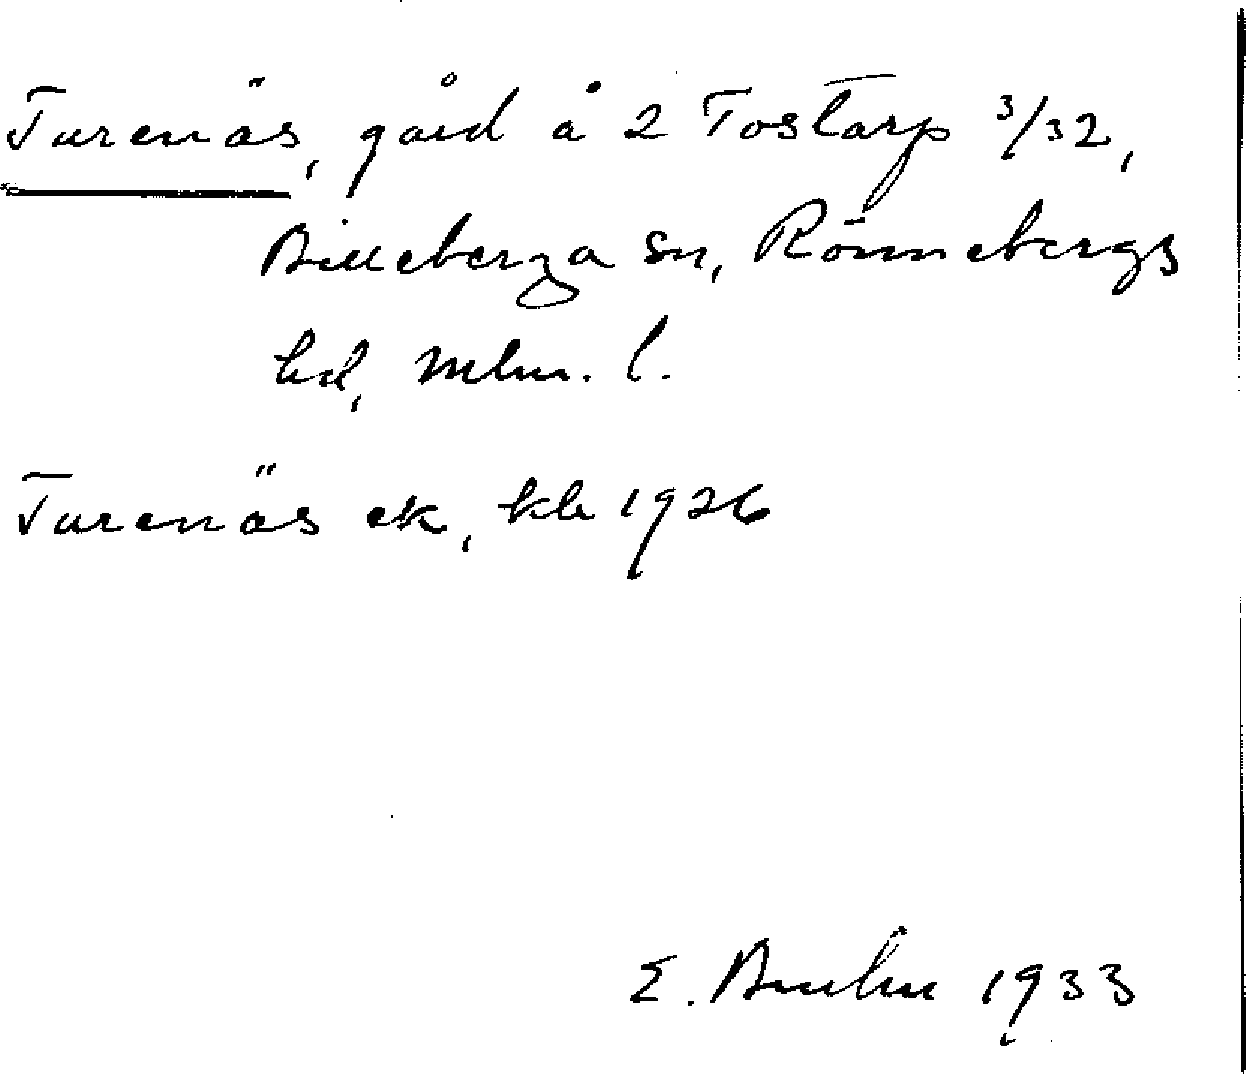 Turenäs, gård å 2 Tostarp 3/32,
Billeberga sn, Rönnebergs
hd, Mlm. l.
Turenäs ek, kb 1926
E. Bruhn 1933